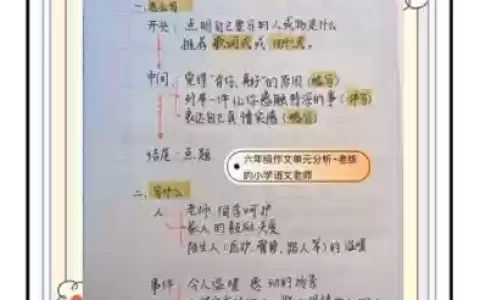 一、怎么写
开头：点明自己要写的人或物是什么
推荐歌词式或
中间：觉得“有你，真好”的原因（略写）
列举一件让你感触特深的事（详写）
表达自己真情实感（略写）
结尾：点题
六年级作文单元分析-老练
的小学语文老师
二、写什么
人 老师 同学呵护
家人的鼓励关爱
陌生人（医护、警察、路人等）的温暖
事件：令人温暖 感动的场景